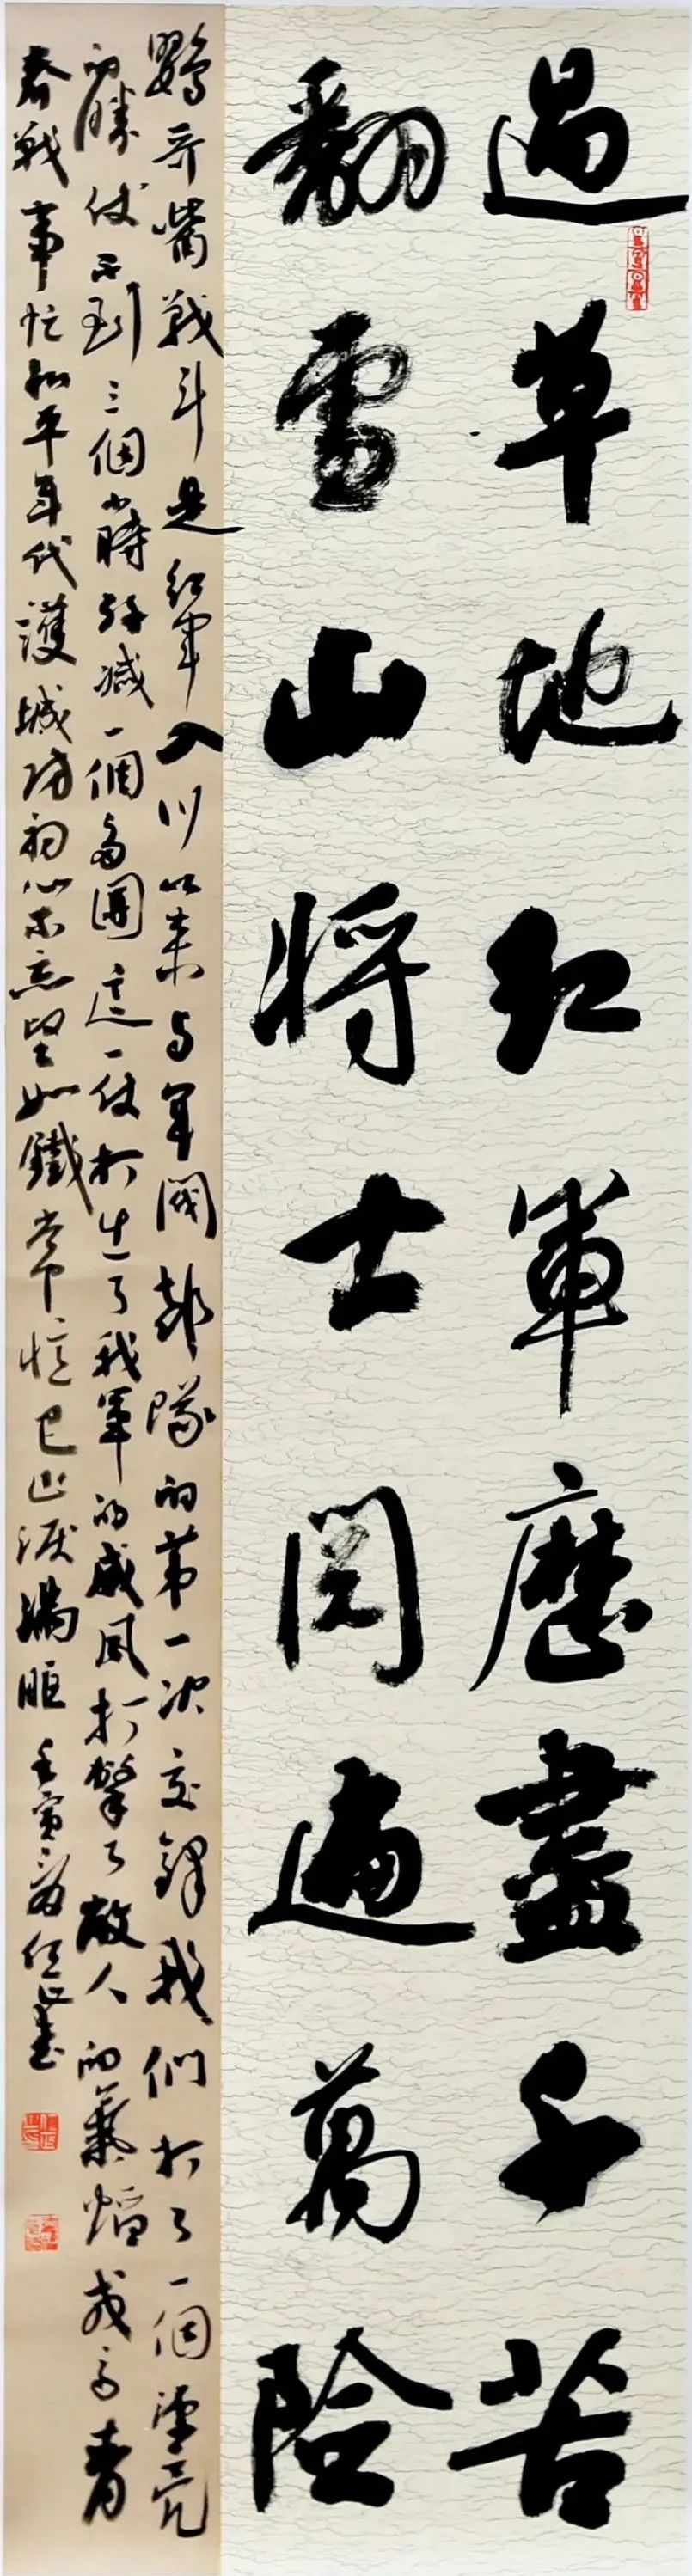 過草地红軍歷盡千苦
翻雪山将士閱遍萬險
鸚哥嘴戰斗是红軍入川以来与軍閥部隊的第一次交鋒我們打了一個漂亮
的勝仗不到三個小時歼滅一個多團這一仗打出了我軍的威風打擊了敵人的氣焰戎马青
春戰事忙和平年代護城防初心不忘堅如鐵常憶巴山淚满眶 壬寅夏任書